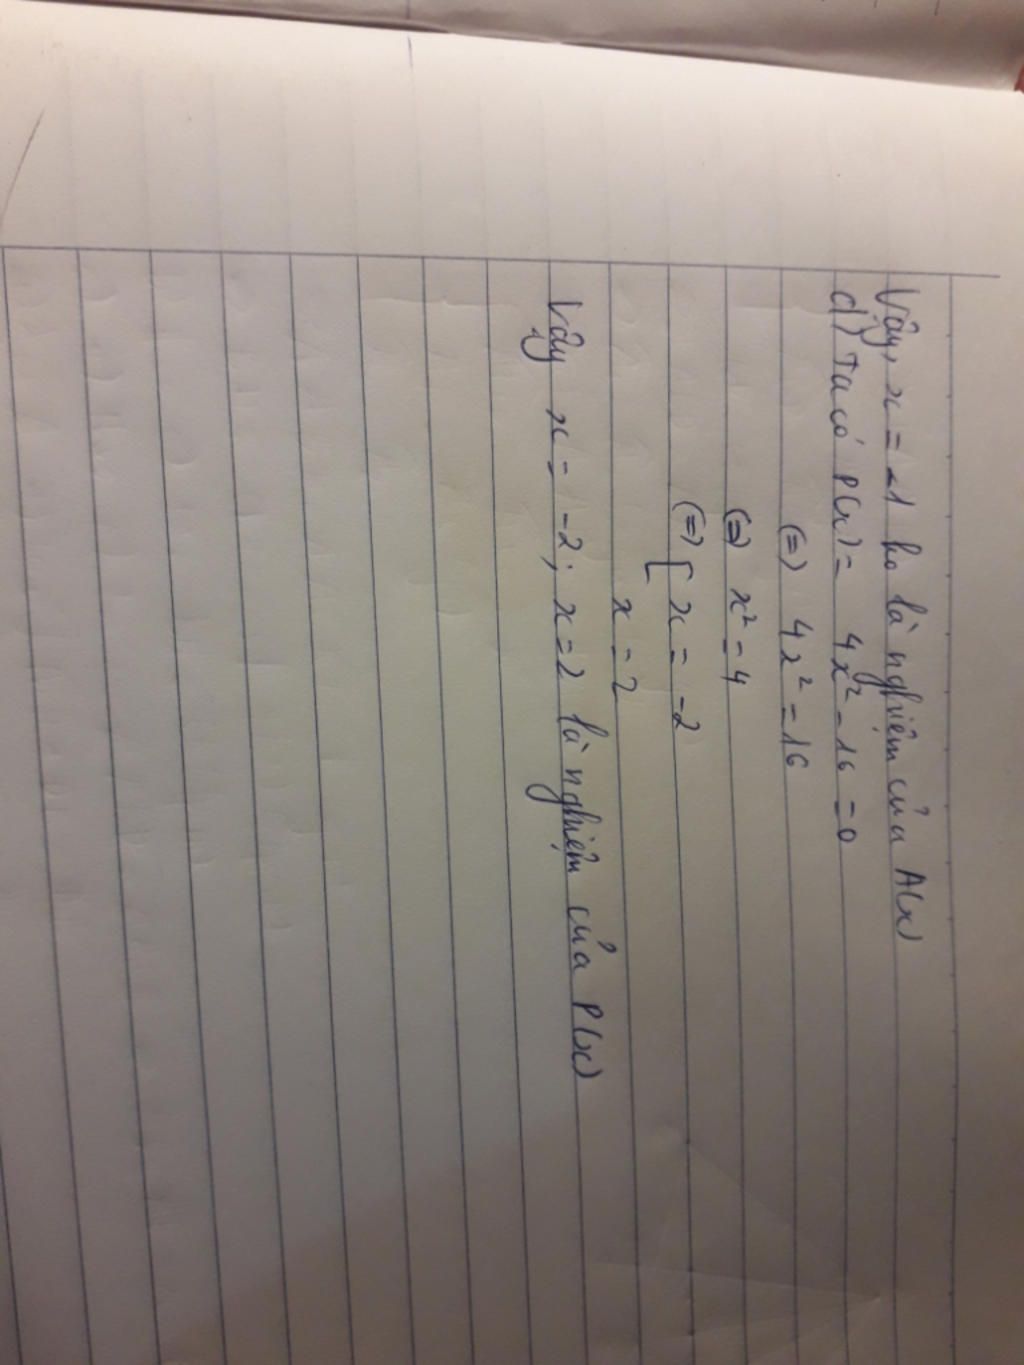 Vậy, x = -1 ko là nghiệm của A(x)
d) Ta có P(x) = 4x² - 16 = 0
(=) 4x² = 16
(=) x² = 4
(=) [ x = -2
x = 2
Vậy x = -2; x = 2 là nghiệm của P(x)